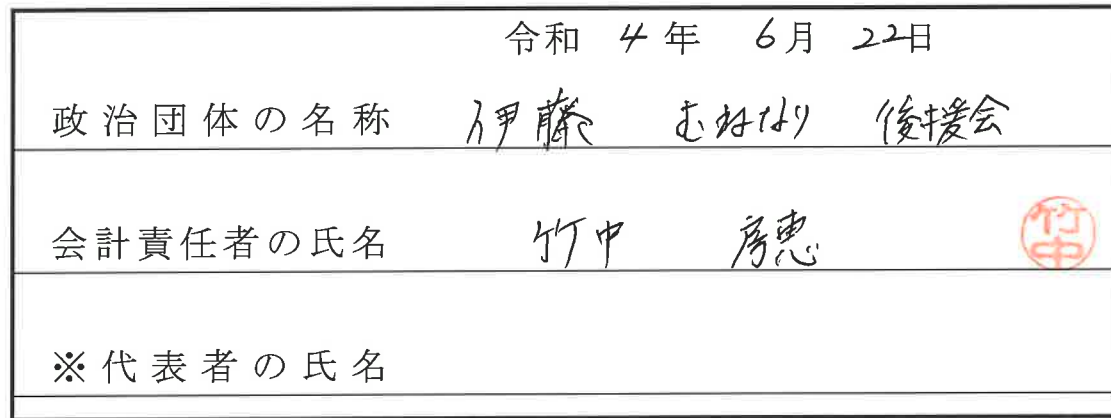 令和 4年 6月 22日
政治団体の名称 伊藤 むねなり 後援会
会計責任者の氏名 竹中 房恵 竹中
※代表者の氏名